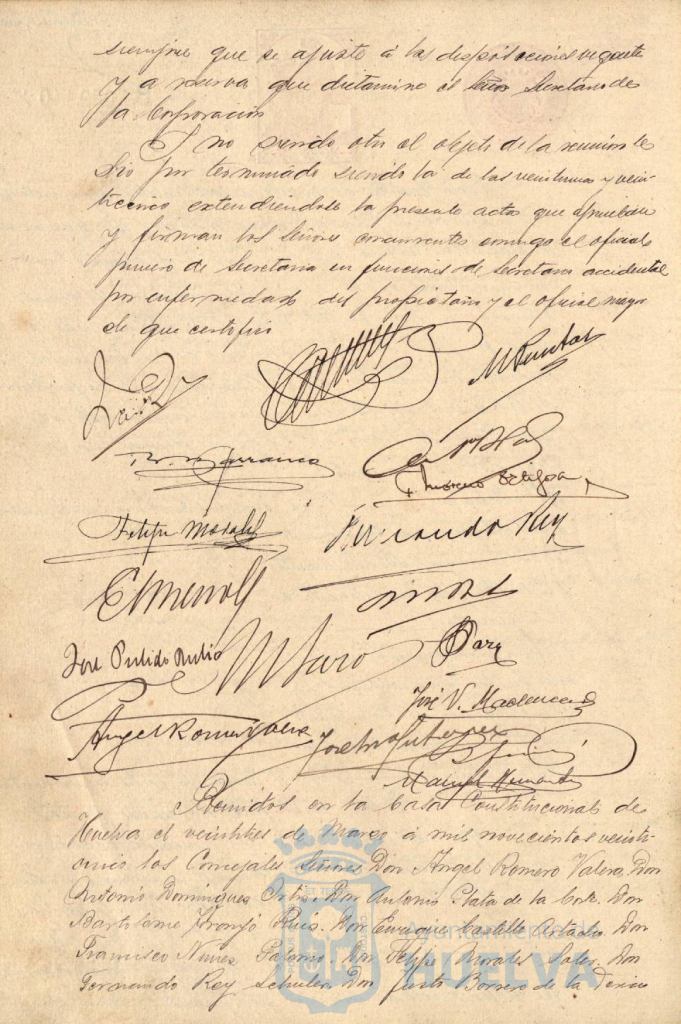 siempre que se ajuste á las disposiciones vigente
y a reserva que dictamine el Señor Secretario de
la Corporación
Y no siendo otro el objeto de la reunion se
dio por terminado siendo la de las veintiuna y vein
ticinco extendiéndose la presente acta que aprueban
y firman los Señores concurrentes conmigo el oficial
primero de Secretaria en funciones de Secretario accidental
por enfermedad del propietario y el oficial mayor
de que certifico
Felipe Morales
F. Moreno Ortega
Fernando Rey
José Pulido Rubio
José V. Maolencas
Angel Romero Valera
José Gutierrez
Manuel Hernandez
Reunidos en la Casa Constitucional de
Huelva el veintitres de Marzo á mil novecientos veinti
uno los Concejales Señores Don Angel Romero Valera, Don
Antonio Dominguez Ortiz, Don Antonio Plata de la Corte, Don
Bartolome Naranjo Ruis, Don Enrique Castilla Artadio, Don
Francisco Nuñez Palomo, Don Felipe Morales Soler, Don
Fernando Rey Schuler, Don Justo Borrero de la
Ayuntamiento de
HUELVA